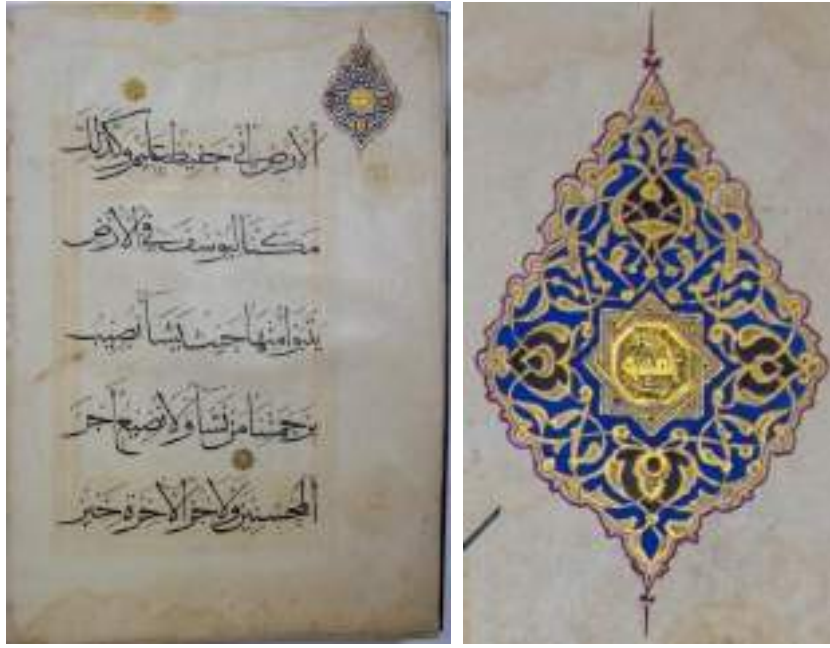 الأرض إني حفيظ عليم وكذلك
مكنا ليوسف في الأرض
يتبوا منها حيث يشا نصيب
برحمتنا من نشا ولا نضيع أجر
المحسنين ولاجر الاخرة خير